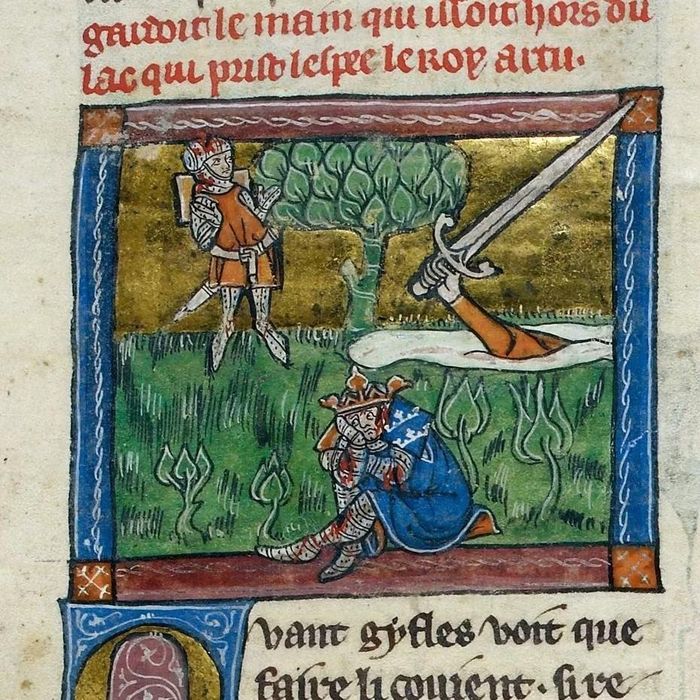 gardoit le main qui issoit hors du
lac qui prist lespee le roy artu.
vant gyfles voit que
faire li couient. si re